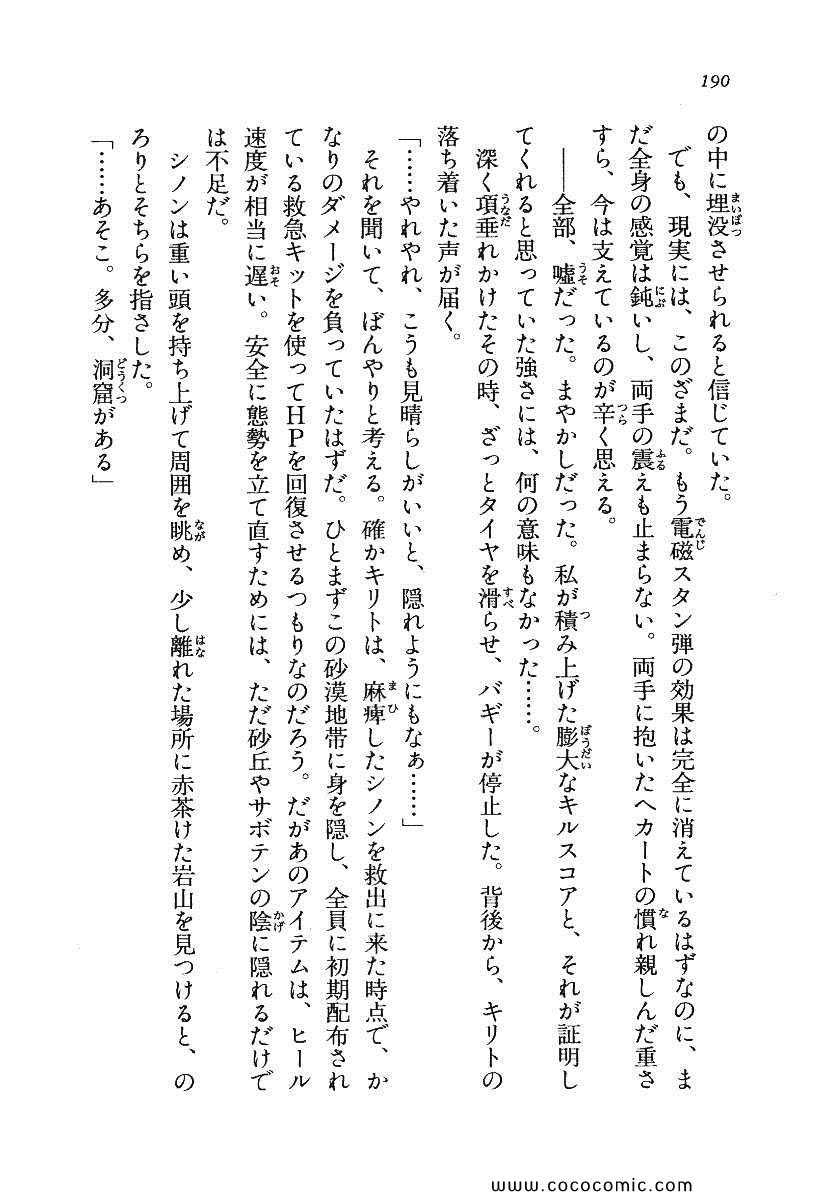 190
の中に埋没させられると信じていた。
でも、現実には、このざまだ。もう電磁スタン弾の効果は完全に消えているはずなのに、ま
だ全身の感覚は鈍いし、両手の震えも止まらない。両手に抱いたヘカートの慣れ親しんだ重さ
すら、今は支えているのが辛く思える。
――全部、嘘だった。まやかしだった。私が積み上げた膨大なキルスコアと、それが証明し
てくれると思っていた強さには、何の意味もなかった……。
深く項垂れかけたその時、ざっとタイヤを滑らせ、バギーが停止した。背後から、キリトの
落ち着いた声が届く。
「……やれやれ、こうも見晴らしがいいと、隠れようにもなぁ……」
それを聞いて、ぼんやりと考える。確かキリトは、麻痺したシノンを救出に来た時点で、か
なりのダメージを負っていたはずだ。ひとまずこの砂漠地帯に身を隠し、全員に初期配布され
ている救急キットを使ってＨＰを回復させるつもりなのだろう。だがあのアイテムは、ヒール
速度が相当に遅い。安全に態勢を立て直すためには、ただ砂丘やサボテンの陰に隠れるだけで
は不足だ。
シノンは重い頭を持ち上げて周囲を眺め、少し離れた場所に赤茶けた岩山を見つけると、の
ろりとそちらを指さした。
「……あそこ。多分、洞窟がある」
www.cococomic.com